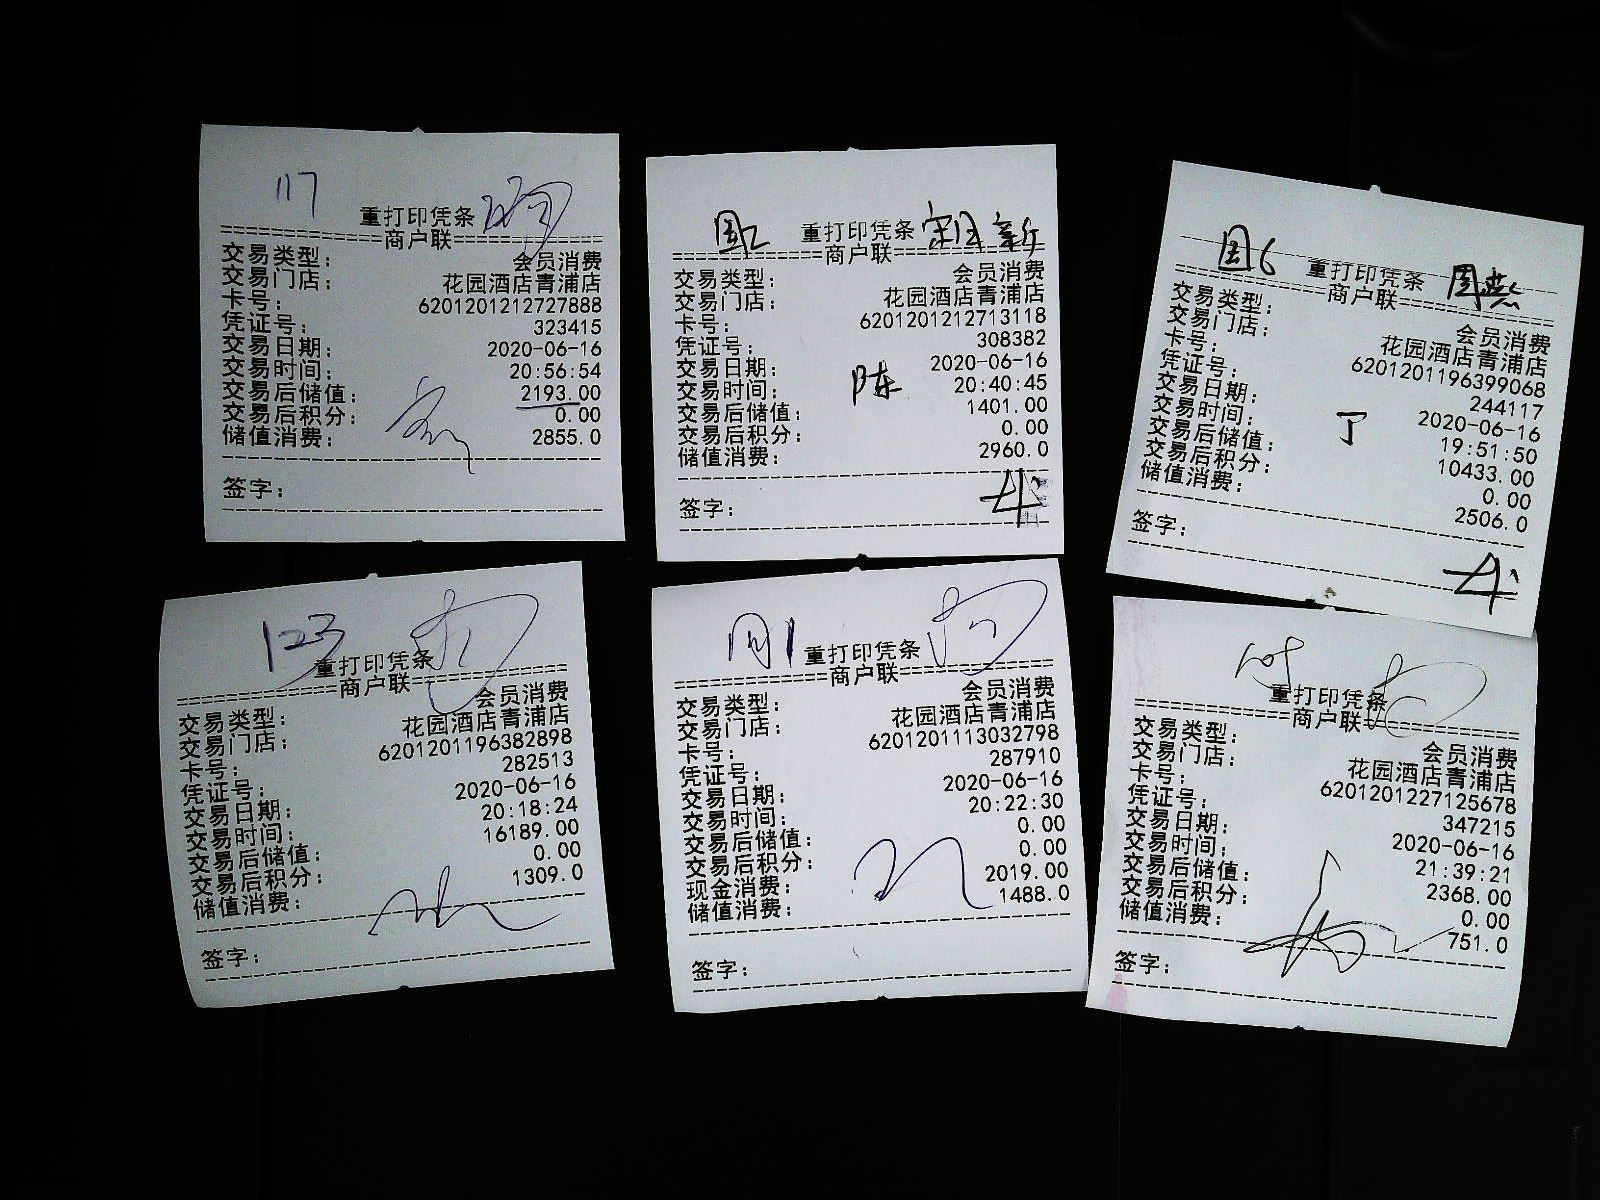 117
重打印凭条
商户联
交易类型： 会员消费
交易门店： 花园酒店青浦店
卡号： 6201201212727888
凭证号： 323415
交易日期： 2020-06-16
交易时间： 20:56:54
交易后储值： 2193.00
交易后积分： 0.00
储值消费： 2855.0
签字：
周2 重打印凭条
商户联
交易类型： 会员消费
交易门店： 花园酒店青浦店
卡号： 6201201212713118
凭证号： 308382
交易日期： 2020-06-16
交易时间： 20:40:45
陈
交易后储值： 1401.00
交易后积分： 0.00
储值消费： 2960.0
签字：
周6 重打印凭条 周燕
商户联
交易类型： 会员消费
交易门店： 花园酒店青浦店
卡号： 6201201196399068
凭证号： 244117
交易日期： 2020-06-16
交易时间： 19:51:50
丁
交易后储值： 10433.00
交易后积分： 0.00
储值消费： 2506.0
签字：
123
重打印凭条
商户联
交易类型： 会员消费
交易门店： 花园酒店青浦店
卡号： 6201201196382898
凭证号： 282513
交易日期： 2020-06-16
交易时间： 20:18:24
交易后储值： 16189.00
交易后积分： 0.00
储值消费： 1309.0
签字：
周1 重打印凭条
商户联
交易类型： 会员消费
交易门店： 花园酒店青浦店
卡号： 6201201113032798
凭证号： 287910
交易日期： 2020-06-16
交易时间： 20:22:30
交易后储值： 0.00
交易后积分： 0.00
现金消费： 2019.00
储值消费： 1488.0
签字：
重打印凭条
商户联
交易类型： 会员消费
交易门店： 花园酒店青浦店
卡号： 6201201227125678
凭证号： 347215
交易日期： 2020-06-16
交易时间： 21:39:21
交易后储值： 2368.00
交易后积分： 0.00
储值消费： 751.0
签字：